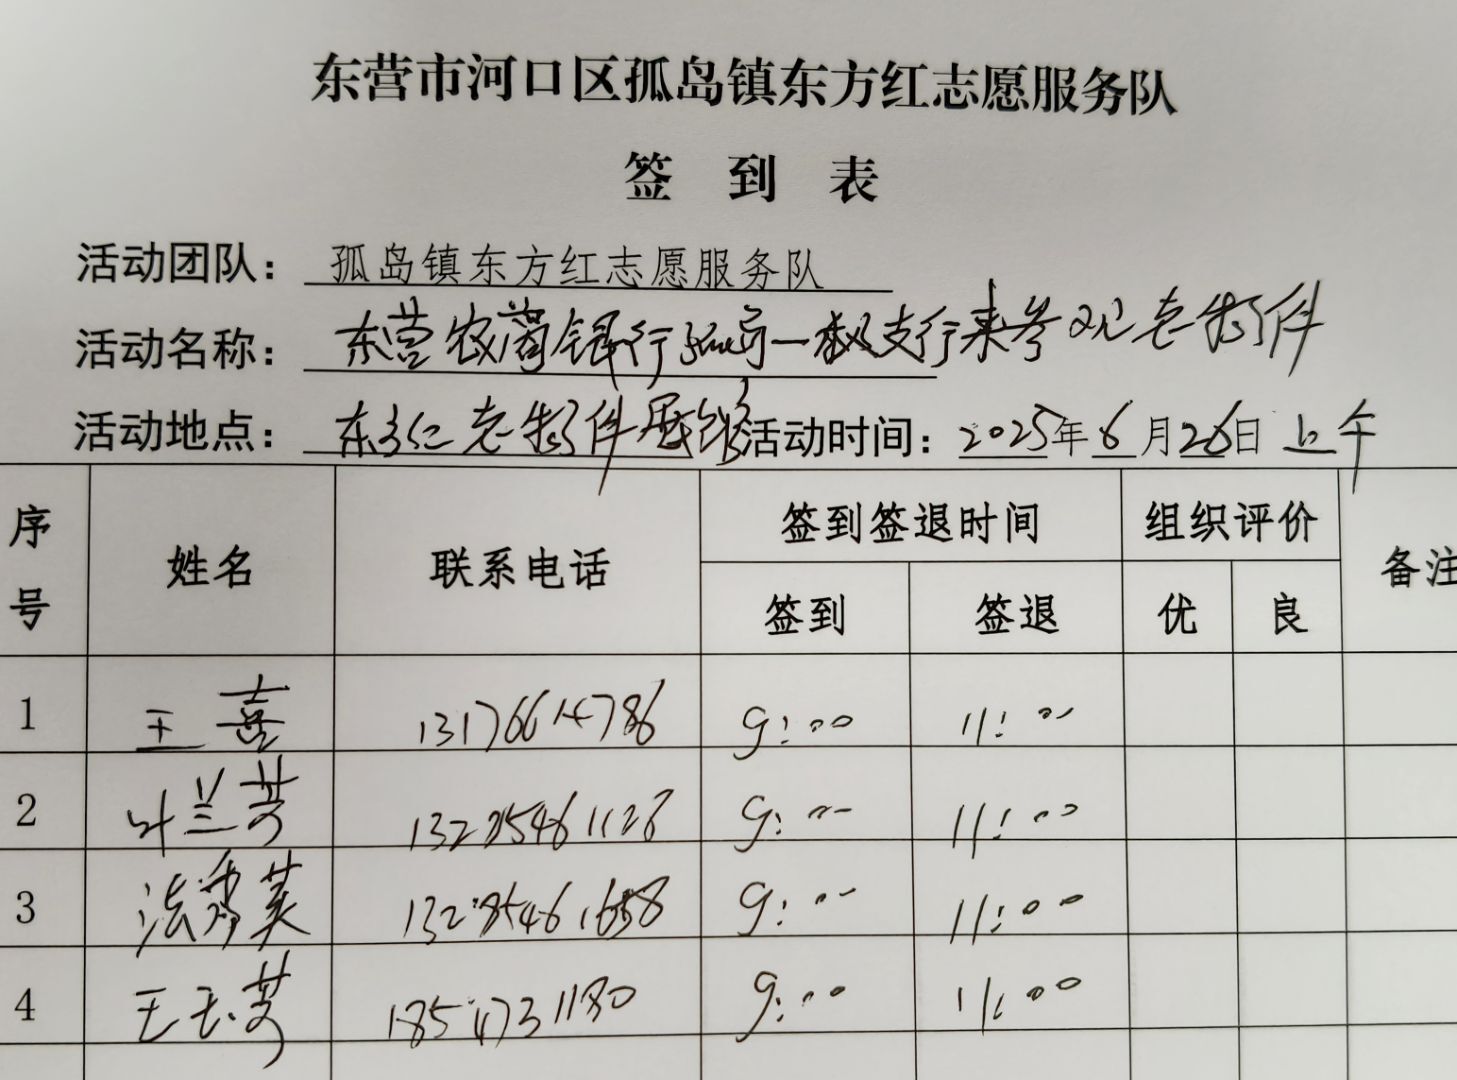 东营市河口区孤岛镇东方红志愿服务队
签 到 表
活动团队： 孤岛镇东方红志愿服务队
活动名称： 东营农商银行孤岛一棵树支行来参观老物件
活动地点： 东方红老物件展馆 活动时间：2025年6月26日上午
序号 姓名 联系电话 签到签退时间 组织评价 备注
签到 签退 优 良
1 王喜 13176614786 9:00 11:00
2 叶兰芳 9:00 11:00
3 9:00 11:00
4 王玉芳 9:00 11:00